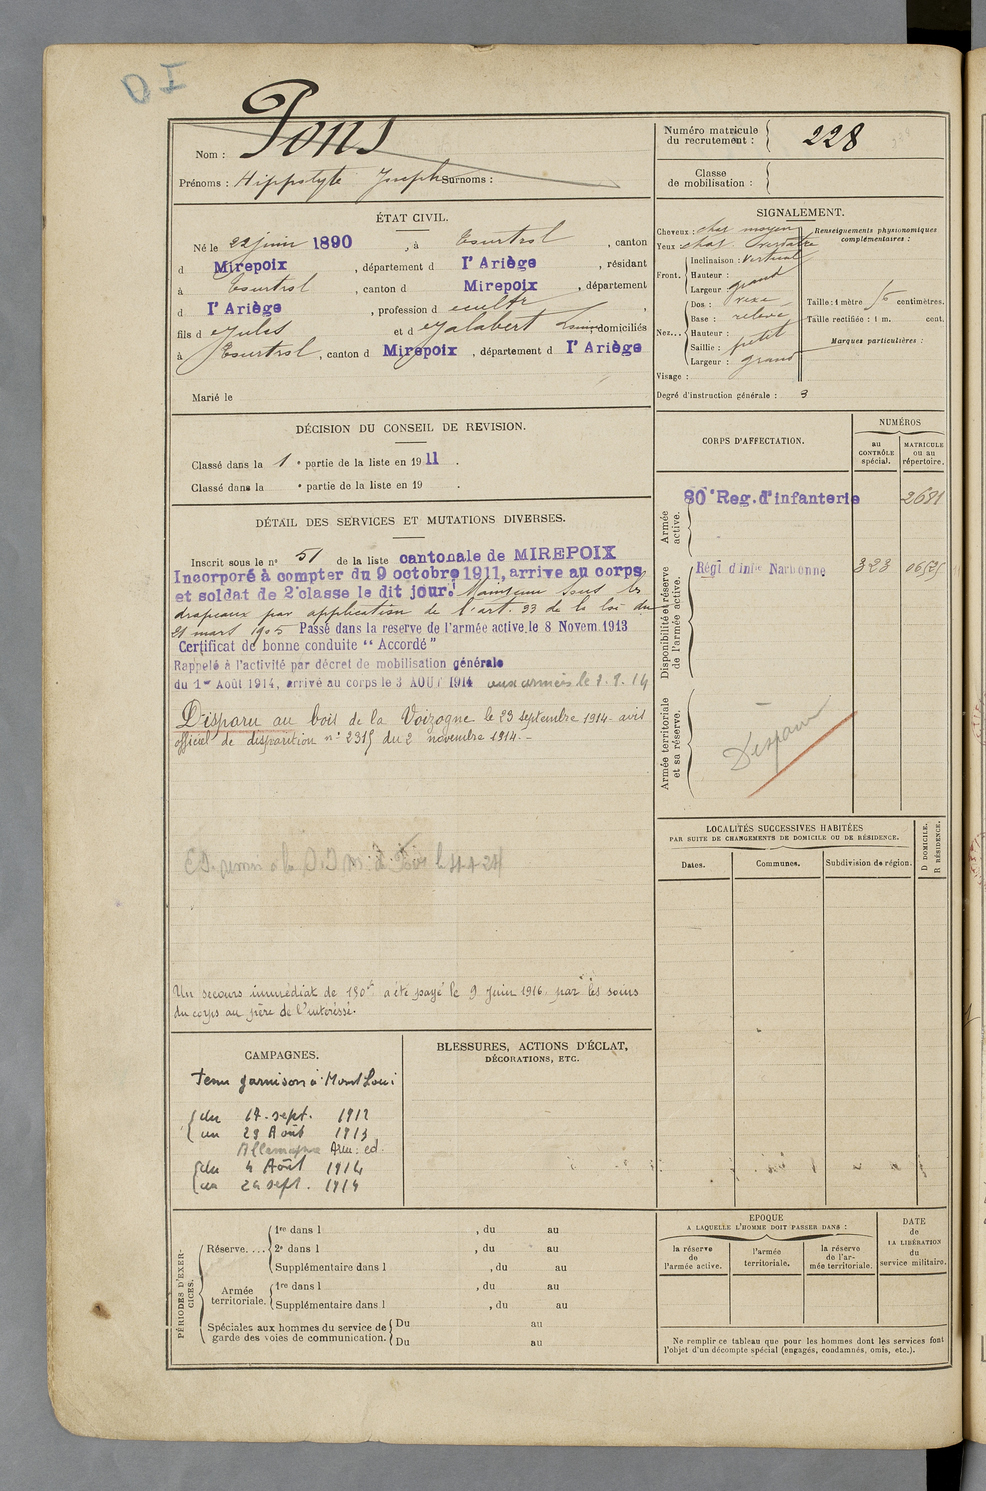 DI
Nom : Pons
Prénoms : Hippolyte Joseph Surnoms :
Numéro matricule
du recrutement : 228
Classe
de mobilisation :
ÉTAT CIVIL.
Né le 22 juin 1890, à Esurtrol, canton
d Mirepoix, département d l'Ariège, résidant
à Esurtrol, canton d Mirepoix, département
d l'Ariège, profession d cultr,
fils d Jules et d Jalabert domiciliés
à Esurtrol, canton d Mirepoix, département d l'Ariège
Marié le
SIGNALEMENT.
Cheveux : chat moyen
Yeux chat verdâtre
Front. Inclinaison : vertical
Hauteur :
Largeur : grand
Nez... Dos : vexe
Base : relevé
Hauteur :
Saillie : petit
Largeur : grand
Visage :
Renseignements physionomiques
complémentaires :
Taille : 1 mètre centimètres.
Taille rectifiée : 1 m. cent.
Marques particulières :
Degré d'instruction générale : 3
DÉCISION DU CONSEIL DE REVISION.
Classé dans la 1e partie de la liste en 1911.
Classé dans la e partie de la liste en 19 .
DÉTAIL DES SERVICES ET MUTATIONS DIVERSES.
Inscrit sous le n° 51 de la liste cantonale de MIREPOIX
Incorporé à compter du 9 octobre 1911, arrive au corps
et soldat de 2e classe le dit jour. Maintenu sous les
drapeaux par application de l'art. 33 de la loi du
21 mars 1905 Passé dans la reserve de l'armée active, le 8 Novem. 1913
Certificat de bonne conduite "Accordé"
Rappelé à l'activité par décret de mobilisation générale
du 1er Août 1914, arrivé au corps le 3 AOUT 1914 aux armées le
Disparu au bois de la Voizogne le 23 septembre 1914 - avis
officiel de disparition n° 2315 du 2 novembre 1914. -
Un secours immédiat de 150f a été payé le 9 Juin 1916 par les soins
du corps au père de l'intéressé.
CORPS D'AFFECTATION.
NUMÉROS
au
CONTRÔLE
spécial.
MATRICULE
ou au
répertoire.
Armée
active.
80e Reg. d'infanterie 2681
Disponibilité et réserve
de l'armée active.
Régt d'Infie Narbonne 323
Armée territoriale
et sa réserve.
Disparu
LOCALITÉS SUCCESSIVES HABITÉES
PAR SUITE DE CHANGEMENTS DE DOMICILE OU DE RÉSIDENCE.
Dates.
Communes.
Subdivision de région.
D DOMICILE.
R RÉSIDENCE.
CAMPAGNES.
Tenu garnison à Mont Loui
du 14 sept. 1912
au 29 Août 1913
Allemagne
du 4 Août 1914
au sept. 1914
BLESSURES, ACTIONS D'ÉCLAT,
DÉCORATIONS, ETC.
PÉRIODES D'EXER-
CICES.
Réserve.... 1re dans l , du au
2e dans l , du au
Supplémentaire dans l , du au
Armée
territoriale. 1re dans l , du au
Supplémentaire dans l , du au
Spéciales aux hommes du service de
garde des voies de communication. Du au
Du au
EPOQUE
A LAQUELLE L'HOMME DOIT PASSER DANS :
la réserve
de
l'armée active.
l'armée
territoriale.
la réserve
de l'ar-
mée territoriale.
DATE
de
LA LIBÉRATION
du
service militaire.
Ne remplir ce tableau que pour les hommes dont les services font
l'objet d'un décompte spécial (engagés, condamnés, omis, etc.).